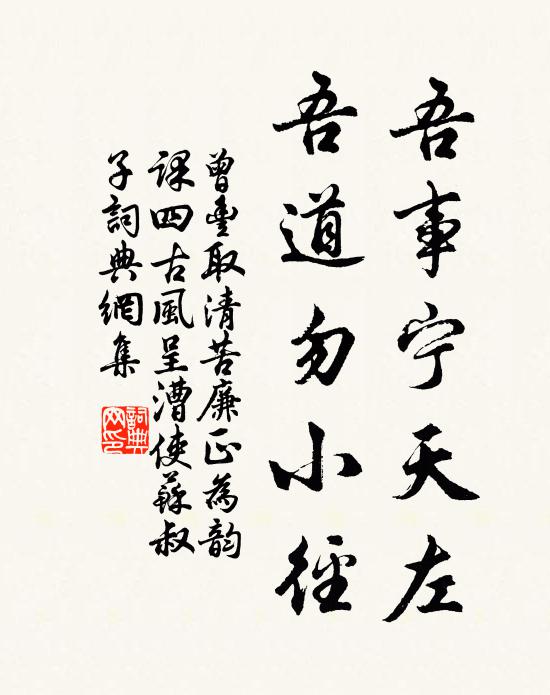 吾事宁天左
吾道勿小徑
曾豊取清苦廉正為韵
課四古風呈漕使蘇叔
子詞典網集
詞典网印